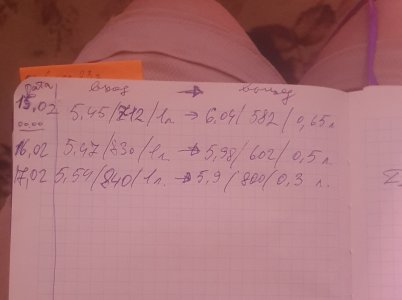 Дата вход → выход
15,02 5,45/712/1л → 6,04/582/0,65л
00.00
16,02 5,47/830/1л → 5,98/602/0,5л
17,02 5,54/840/1л. → 5,9/800/0,3 л.